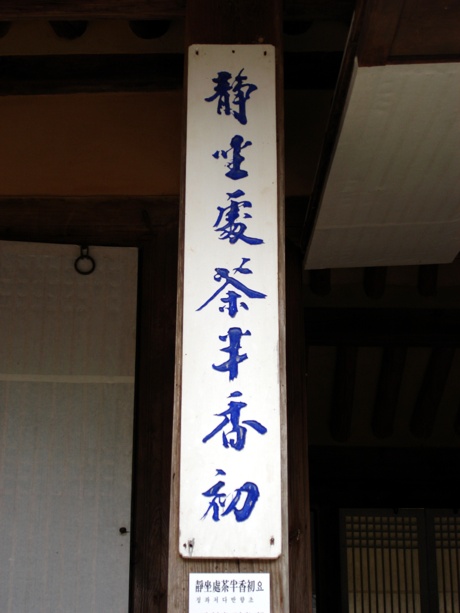 靜坐處茶半香初
靜坐處茶半香初요
정좌처다반향초